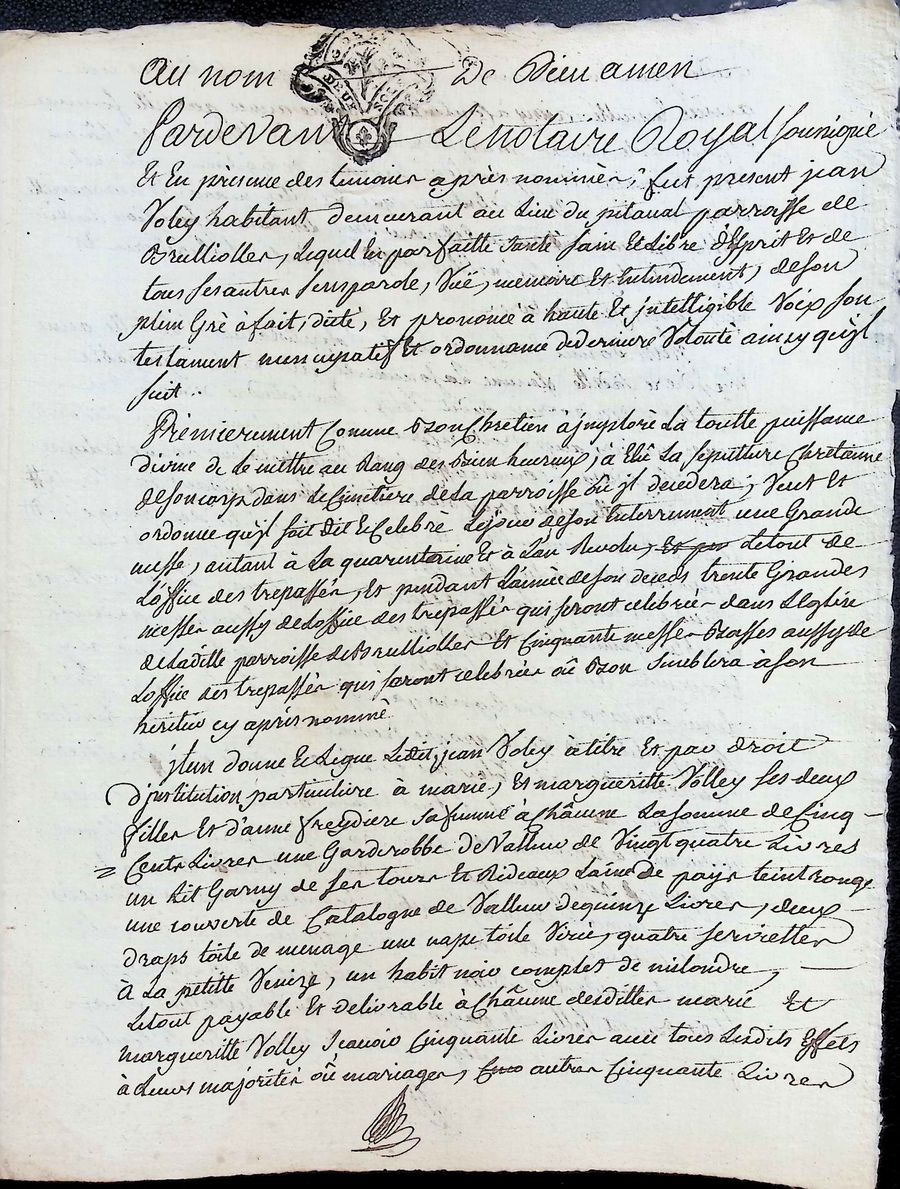 au nom De Dieu amen
Pardevant Le notaire Royal soussigné
Et En présence des temoins après nommés, fut présent jean
Voley habitant demeurant au Lieu du pitaval parroisse de
Brulliolles, Lequel En parfaitte santé sain Et Libre d'Esprit Et de
tous ses autres sens parole, Vüe, memoire Et Entendement, de son
plein Gré à fait, dicté, Et prononcé à haute Et jntelligible Voix son
testament nuncupatif Et ordonnance de derniere Volonté ainsy qu'jl
suit ..
Prémierement Comme Bon Chretien à jmploré La toutte puissance
divine de Le mettre au Rang des Bien heureux, à Elû La sepulture Chretienne
de son corp dans Le Cimetiere de La parroisse ou jl decedera, Veut Et
ordonne qu'jl soit Dit Et Celebré Le jour de son Enterrement une Grande
messe, autant à La quarentaine Et à L'an Revolu, Et par Le tout de
L'office des trepassés, Et pendant L'année de son deceds trente Grandes
messes aussy de L'office des trepassés qui seront celebrées dans L'Eglise
de Laditte parroisse de Brulliolles Et Cinquante messes Basses aussy de
L'office des trepassés qui seront celebrées oû Bon Semblera à son
heritier cy après nommé
jtem donne Et Legue Ledit jean Voley à titre Et par droit
d'jnstitution particuliere à marie, Et margueritte Volley ses deux
filles Et d'anne freydiere sa femme à Châcune La somme de Cinq
Cents Livres une Garderobbe de Valleur de Vingt quatre Livres
un Lit Garny de ses tours Et Rideaux Laine de pays teint Rouge
une couverte de Catalogne de Valleur de quinze Livres, deux
draps toile de menage une nape toile Virée, quatre serviettes
à La petitte Venize, un habit noir complet de milondre,
Le tout payable Et delivrable à Châcune desdittes marie Et
margueritte Volley Scavoir Cinquante Livres avec tous Lesdits Effets
à Leurs majorités oû mariages, autres Cinquante Livres